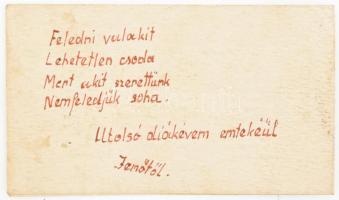 Feledni valakit
Lehetetlen csoda
Mert akit szerettünk
Nemfeledjük soha.
Utolsó diákévem emlékéül
Jenőtől.